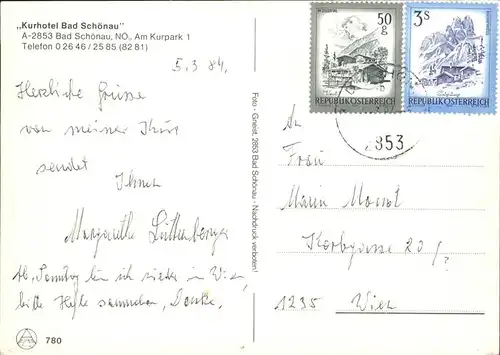 „Kurhotel Bad Schönau"
A-2853 Bad Schönau, NÖ., Am Kurpark 1
Telefon 0 26 46 / 25 85 (82 81)
5.3.84,
Herzliche Grüsse
von meiner Kur
sendet
Ihnen
Margarethe
Ab. Samstag bin ich wieder in Wien,
bitte Hefte sammeln, Danke,
780
Foto - Gneist, 2853 Bad Schönau - Nachdruck verboten!
50
g
REPUBLIK ÖSTERREICH
3S
REPUBLIK ÖSTERREICH
2853
An
Frau
Maria
Korbgasse 20/
1235 Wien